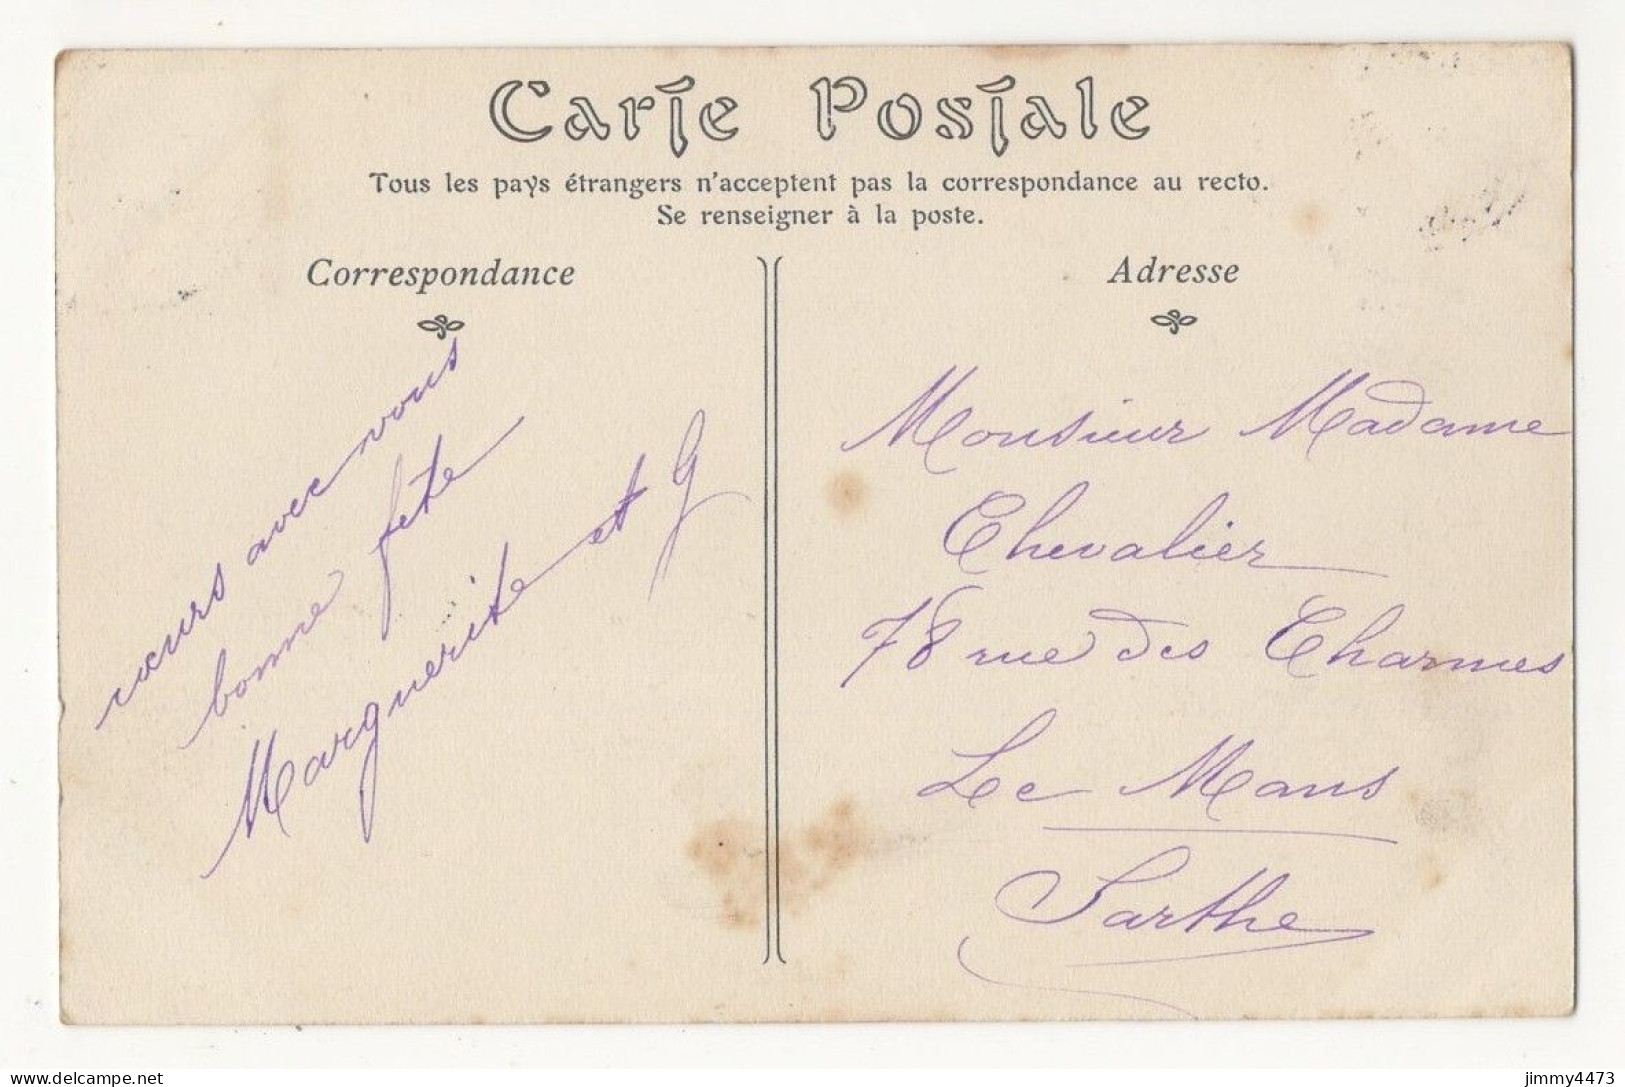 Carte Postale
Tous les pays étrangers n'acceptent pas la correspondance au recto.
Se renseigner à la poste.
Correspondance
cœurs avec vous
bonne fête
Marguerite et G
Adresse
Monsieur Madame
Chevalier
78 rue des Charmes
Le Mans
Sarthe
delcampe.net
jimmy4473